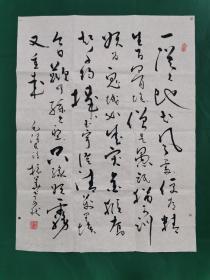 一從大地起风雷便有精
生白骨堆僧是愚氓犹可训
妖为鬼蜮必成灾金猴奋
起千钧棒玉宇澄清万里埃
今日欢呼孙大圣只缘妖雾
又重来
毛泽东诗